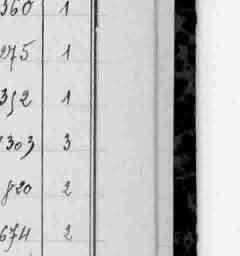 360 1
275 1
392 1
303 3
820 2
674 2